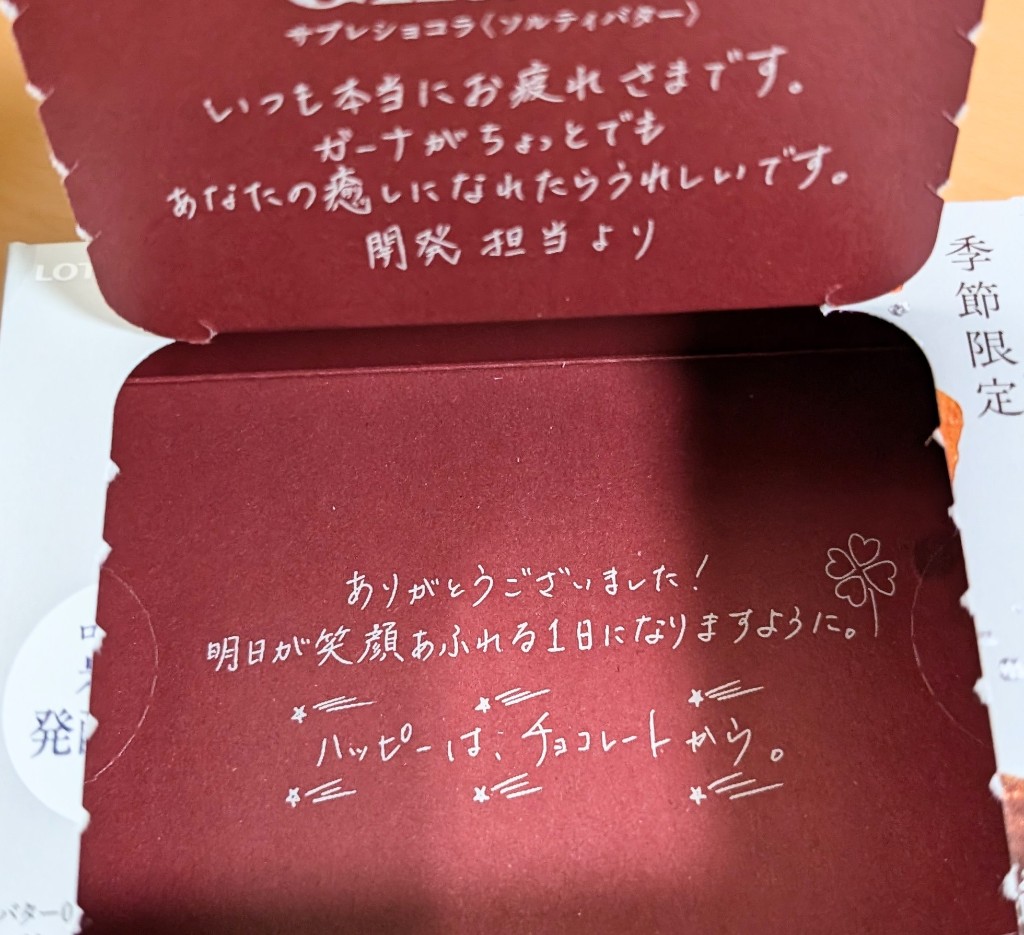 サブレショコラ〈ソルティバター〉
いつも本当にお疲れさまです。
ガーナがちょっとでも
あなたの癒しになれたらうれしいです。
開発担当より
LOT
季節限定
ありがとうございました!
明日が笑顔あふれる1日になりますように。
ハッピーは、チョコレートから。
発
バター